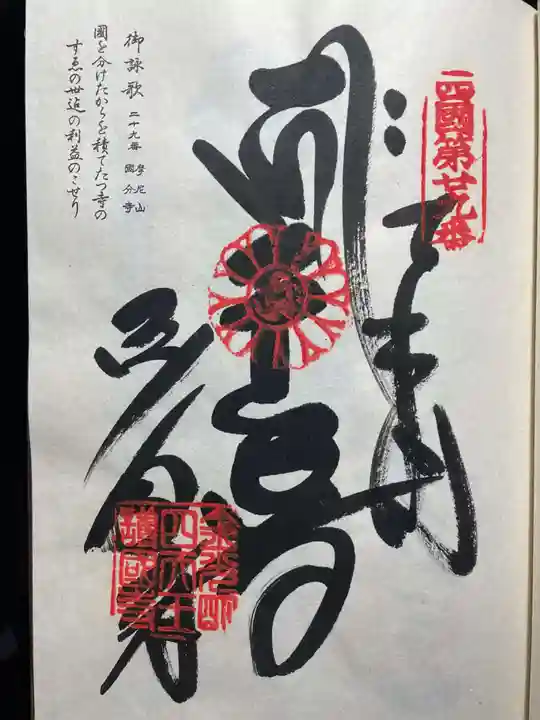 四國第廿九番
奉納
千手
国分寺
金光明
四天王
護國寺
御詠歌 二十九番 摩尼山 國分寺
國を分けたからを積てたつ寺の
すゑの世迄の利益のこせり